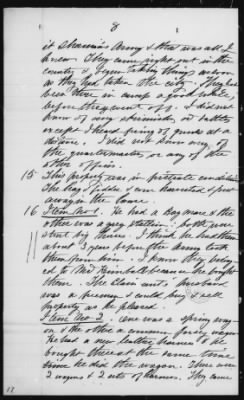 8
it Sherman's Army & that was all I
knew. They came right out in the
country & began taking things as soon
as they had taken the city. They had
been there in camp a good while
before they went off. I did not
know of any skirmish or battle
except I heard firing of guns at a
distance. I did not know any of
the quartermasters or any of the
other officers.
15 This property was in private condition
The hay & fodder & corn harvested & put
away in the barn.
16 Item No 1. He had a Bay mare & the
other was a grey stallion. both were
about big. I think he had them
about 3 year before the Army took
them from him. I know they belonged
to Mr Kimball because he bought
them. The Claimant's husband
was a freeman & could buy & sell
property as he pleased.
Item No 2. One was a spring wagon
& the other a common four wagon
He had a new leather harness & he
bought these at the same time
he did the wagon. There were
2 wagons & 2 sets of harness. They came
17